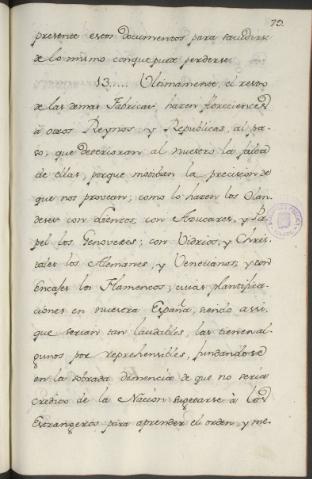 79.
presente estos Documentos para sacudirse
de lo mismo conque puede perderse.
13.... Ultimamente, el resto
de las demas Fabricas, hacen florecientes
à otros Reynos y Republicas, al pa-
so, que deterioran al nuestro la falta
de ellas, porque motiban la precision de
que nos provean; como lo hacen los Olan-
deses con con Azucares, y Pa-
pel los Genoveses; con Vidrios, y Chris-
tales los Alemanes, y Venecianos; y con
Encajes los Flamencos; cuias plantifica-
ciones en nuestra España, siendo assi,
que serian tan laudables, las tienen al-
gunos por reprehensibles, fundandose
en la sobrada demencia de que no seria
credito de la Nacion sugetarse à los
Estrangeros para aprender el orden, y me-